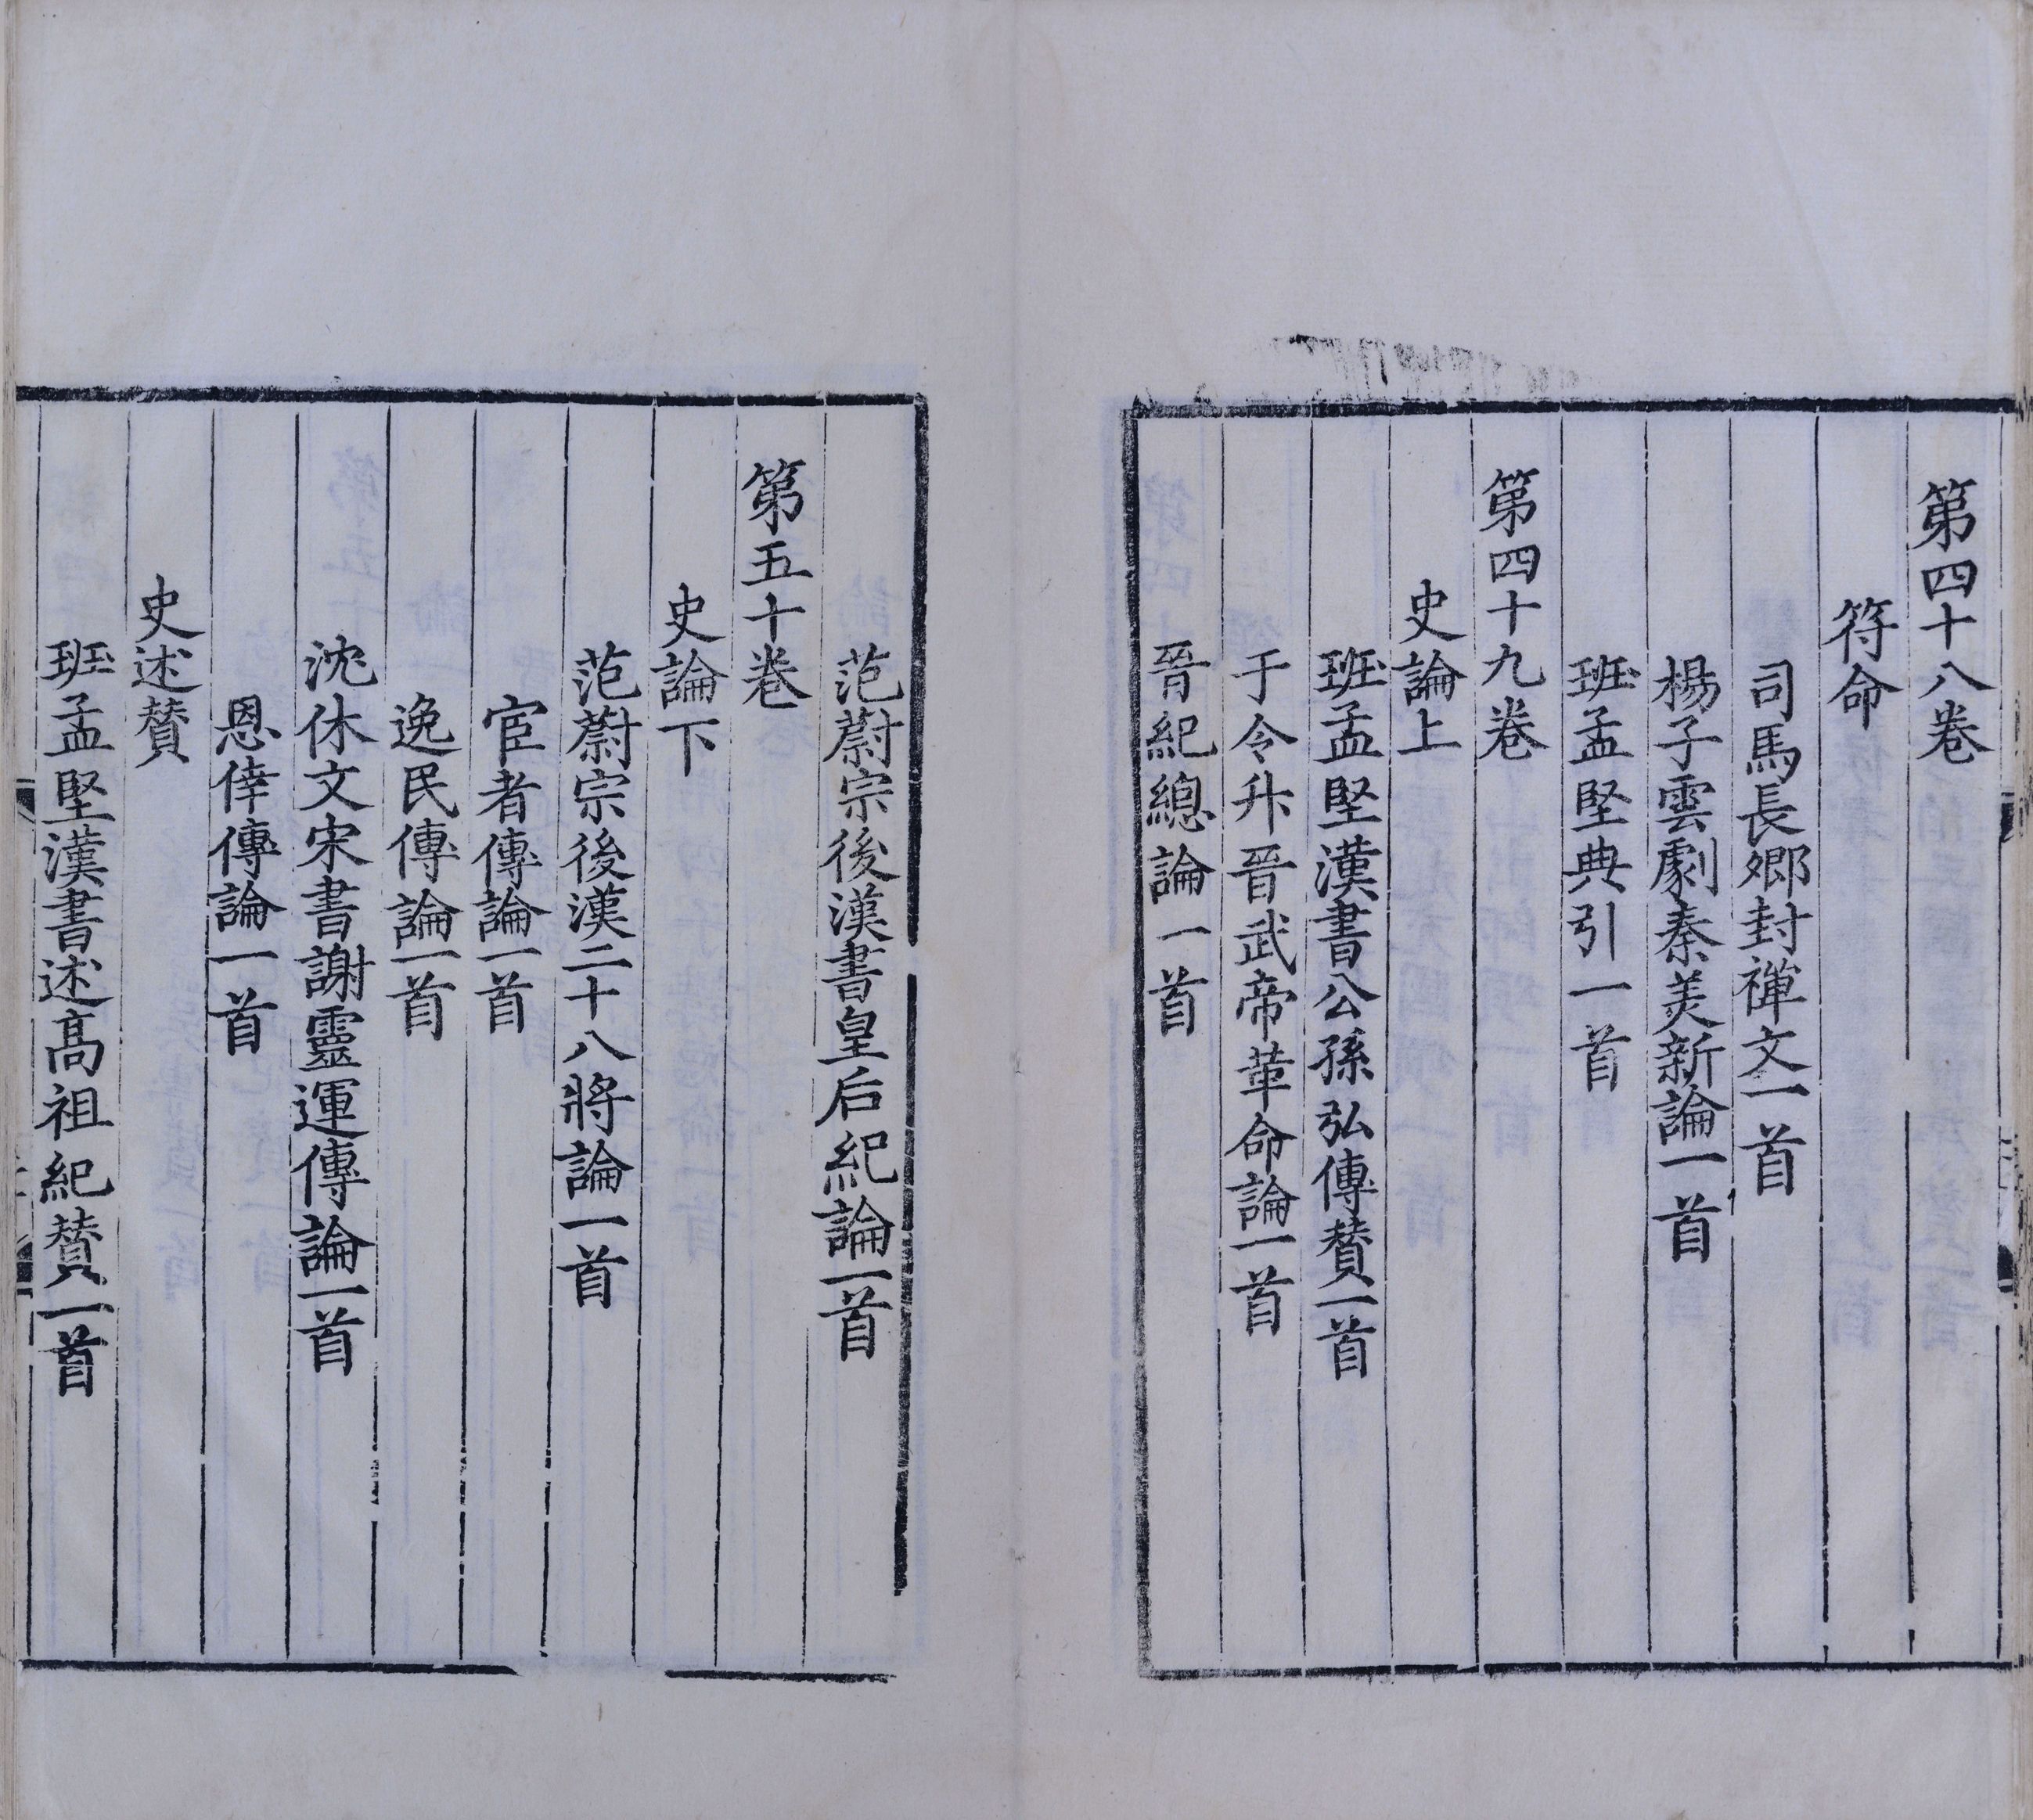 第四十八卷
符命
司馬長卿封禪文一首
楊子雲劇秦美新論一首
班孟堅典引一首
第四十九卷
史論上
班孟堅漢書公孫弘傳贊一首
于令升晉武帝革命論一首
晉紀總論一首
范蔚宗後漢書皇后紀論一首
第五十卷
史論下
范蔚宗後漢二十八將論一首
宦者傳論一首
逸民傳論一首
沈休文宋書謝靈運傳論一首
恩倖傳論一首
史述贊
班孟堅漢書述高祖紀贊一首